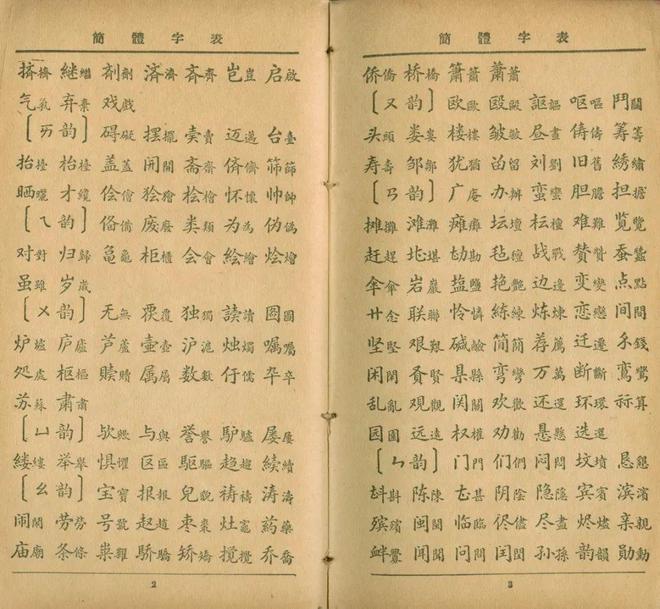 簡體字表
挤擠 继繼 剂劑 济濟 斉齊 岂豈 启啟
气氣 弃棄 戏戲
〔ㄞ韵〕 碍礙 摆擺 卖賣 迈邁 台臺
抬擡 枱檯 盖蓋 开開 斋齋 侪儕 筛篩
晒曬 才纔 侩儈 狯獪 桧檜 怀懷 帅帥
〔ㄟ韵〕 俻備 废廢 类類 为為 伪偽
对對 归歸 亀龜 柜櫃 会會 绘繪 烩燴
虽雖 岁歲
〔ㄨ韵〕 无無 覆 独獨 读讀 图圖
炉爐 庐廬 芦蘆 壶壺 沪滬 烛燭 嘱囑
処處 枢樞 赎贖 属屬 数數 伫儜 卒
苏蘇 肃肅
〔ㄩ韵〕 欤歟 与與 誉譽 驴驢 屡屢
缕縷 举舉 惧懼 区區 驱驅 趋趨 续續
〔ㄠ韵〕 宝寶 报報 皃貌 祷禱 涛濤
闹鬧 劳勞 号號 赵趙 枣棗 灶竈 药藥
庙廟 条條 粜糶 骄驕 矫矯 搅攪 乔喬
2
簡體字表
侨僑 桥橋 箫簫 萧蕭
〔ㄡ韵〕 欧歐 殴毆 讴謳 呕嘔 鬥鬭
头頭 娄婁 楼樓 皱皺 昼晝 俦儔 筹籌
寿壽 邹鄒 犹猶 畄留 刘劉 旧舊 绣繡
〔ㄢ韵〕 广庵 办辦 蛮蠻 胆膽 担擔
摊攤 滩灘 瘫癱 坛壇 枟檀 难難 览覽
赶趕 勘 毡氈 战戰 赞贊 蚕蠶
伞傘 岩巖 盐鹽 艳艷 边邊 变變 点點
廿念 联聯 怜憐 练練 炼煉 恋戀 间間
坚堅 艰艱 硷鹼 简簡 荐薦 迁遷 錢
闲閑 贤賢 县縣 弯彎 万萬 断斷 鸾鸞
乱亂 观觀 关關 欢歡 还還 环環 祘算
园園 远遠 权權 劝勸 悬懸 选選
〔ㄣ韵〕 门門 们們 闷悶 坟墳 恳懇
斟 陈陳 甚 阴陰 隐隱 宾賓 滨濱
殡殯 闽閩 临臨 侭儘 尽盡 烬燼 亲親
衅釁 闻聞 问問 闰閏 孙孫 韵韻 勋勳
3